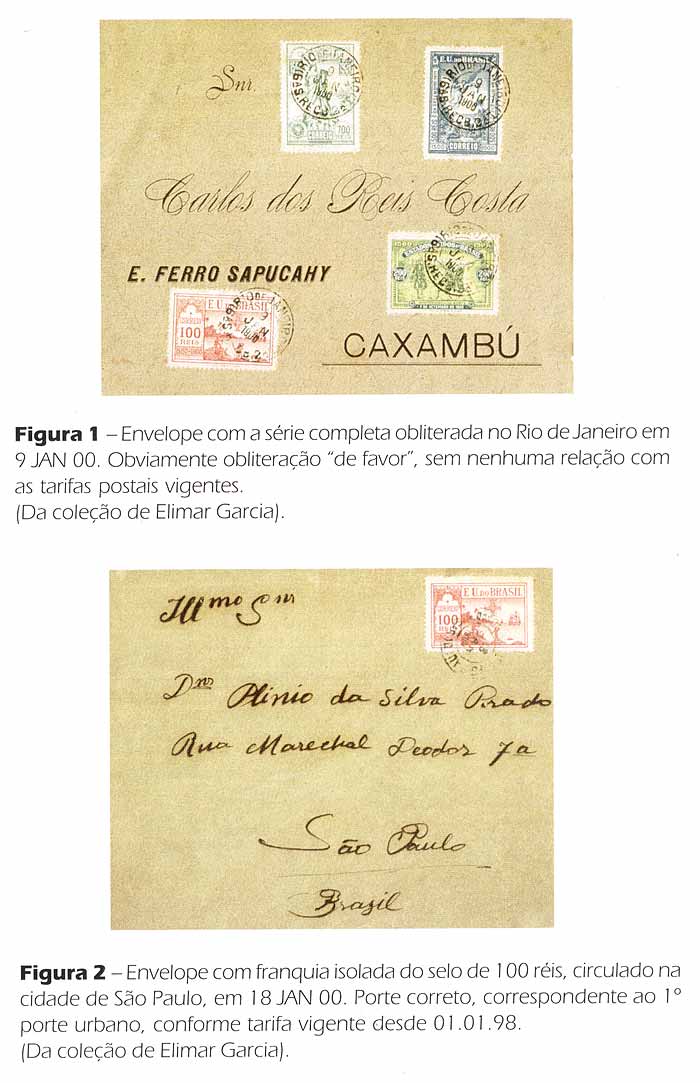 Snr.
E. U. DO BRASIL
CORREIO
700
CORREIO
RIO DE JANEIRO
9
JAN
1900
Carlos dos Reis Costa
E. FERRO SAPUCAHY
E. U. DO BRASIL
CORREIO
100
REIS
CAXAMBÚ
Figura 1 – Envelope com a série completa obliterada no Rio de Janeiro em
9 JAN 00. Obviamente obliteração “de favor”, sem nenhuma relação com
as tarifas postais vigentes.
(Da coleção de Elimar Garcia).
Illmo Snr
E. U. DO BRASIL
CORREIO
100
REIS
Dnr Plinio da Silva Prado
Rua Marechal Deodor 7a
São Paulo
Brazil
Figura 2 – Envelope com franquia isolada do selo de 100 réis, circulado na
cidade de São Paulo, em 18 JAN 00. Porte correto, correspondente ao 1º
porte urbano, conforme tarifa vigente desde 01.01.98.
(Da coleção de Elimar Garcia).